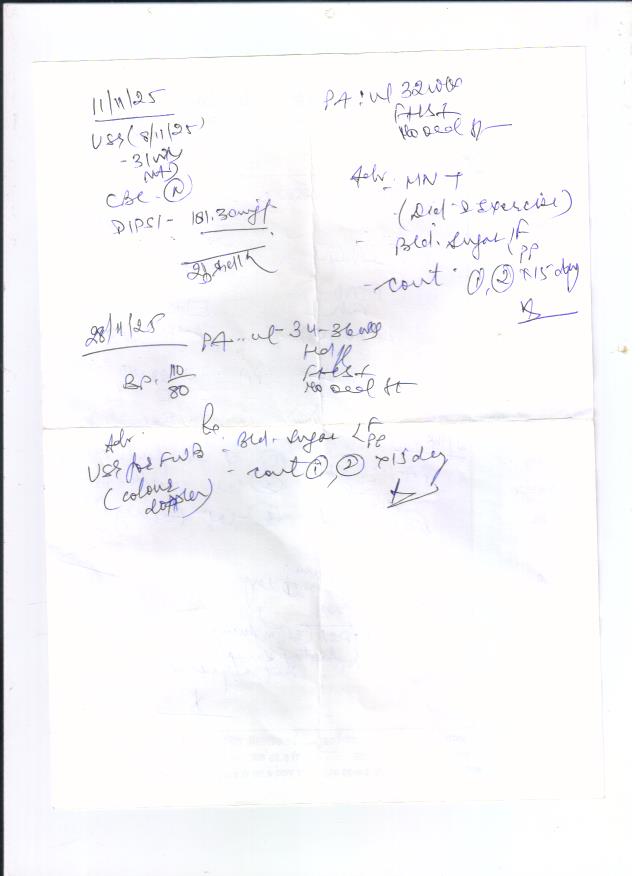 11/11/25
USG (8/11/25)
- 31 wk
CBC - (N)
DIPSI - 181.30 mg/
PA: ut 32 wk
FHS+
No
Adv. MNT
- (Diet & Exercise)
- Bld. Sugar < F
PP
- cont. ①, ② × 15 day
28/11/25
PA.. ut - 34-36 wk
BP. 110
80
FHS+
No
Adv.
USG for FWB
(colour
doppler)
Rx
- Bld. Sugar < F
PP
- cont ①, ② × 15 day